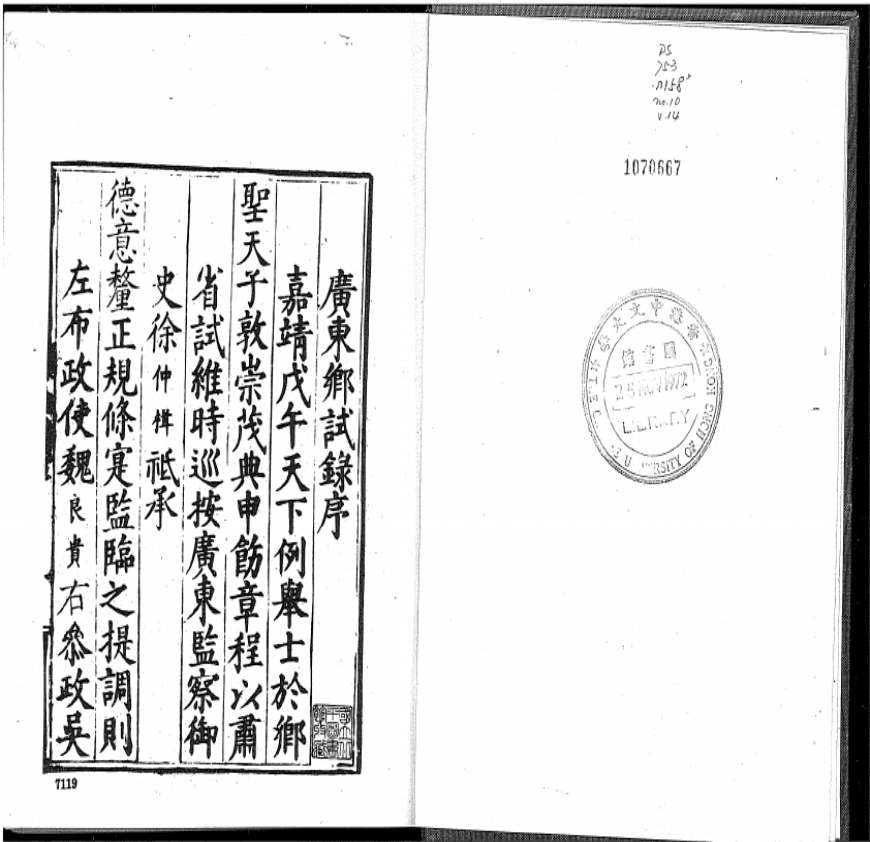 廣東鄉試錄序
嘉靖戊午天下例舉士於鄉
聖天子敦崇茂典申飭章程以肅
省試維時巡按廣東監察御
史徐仲楫祗承
德意釐正規條寔監臨之提調則
左布政使魏良貴右叅政吳
7119
DS
753
no.10
v.14
1070667
香港中文大學
圖書館
25 NOV 1972
UNIVERSITY OF HONG KONG